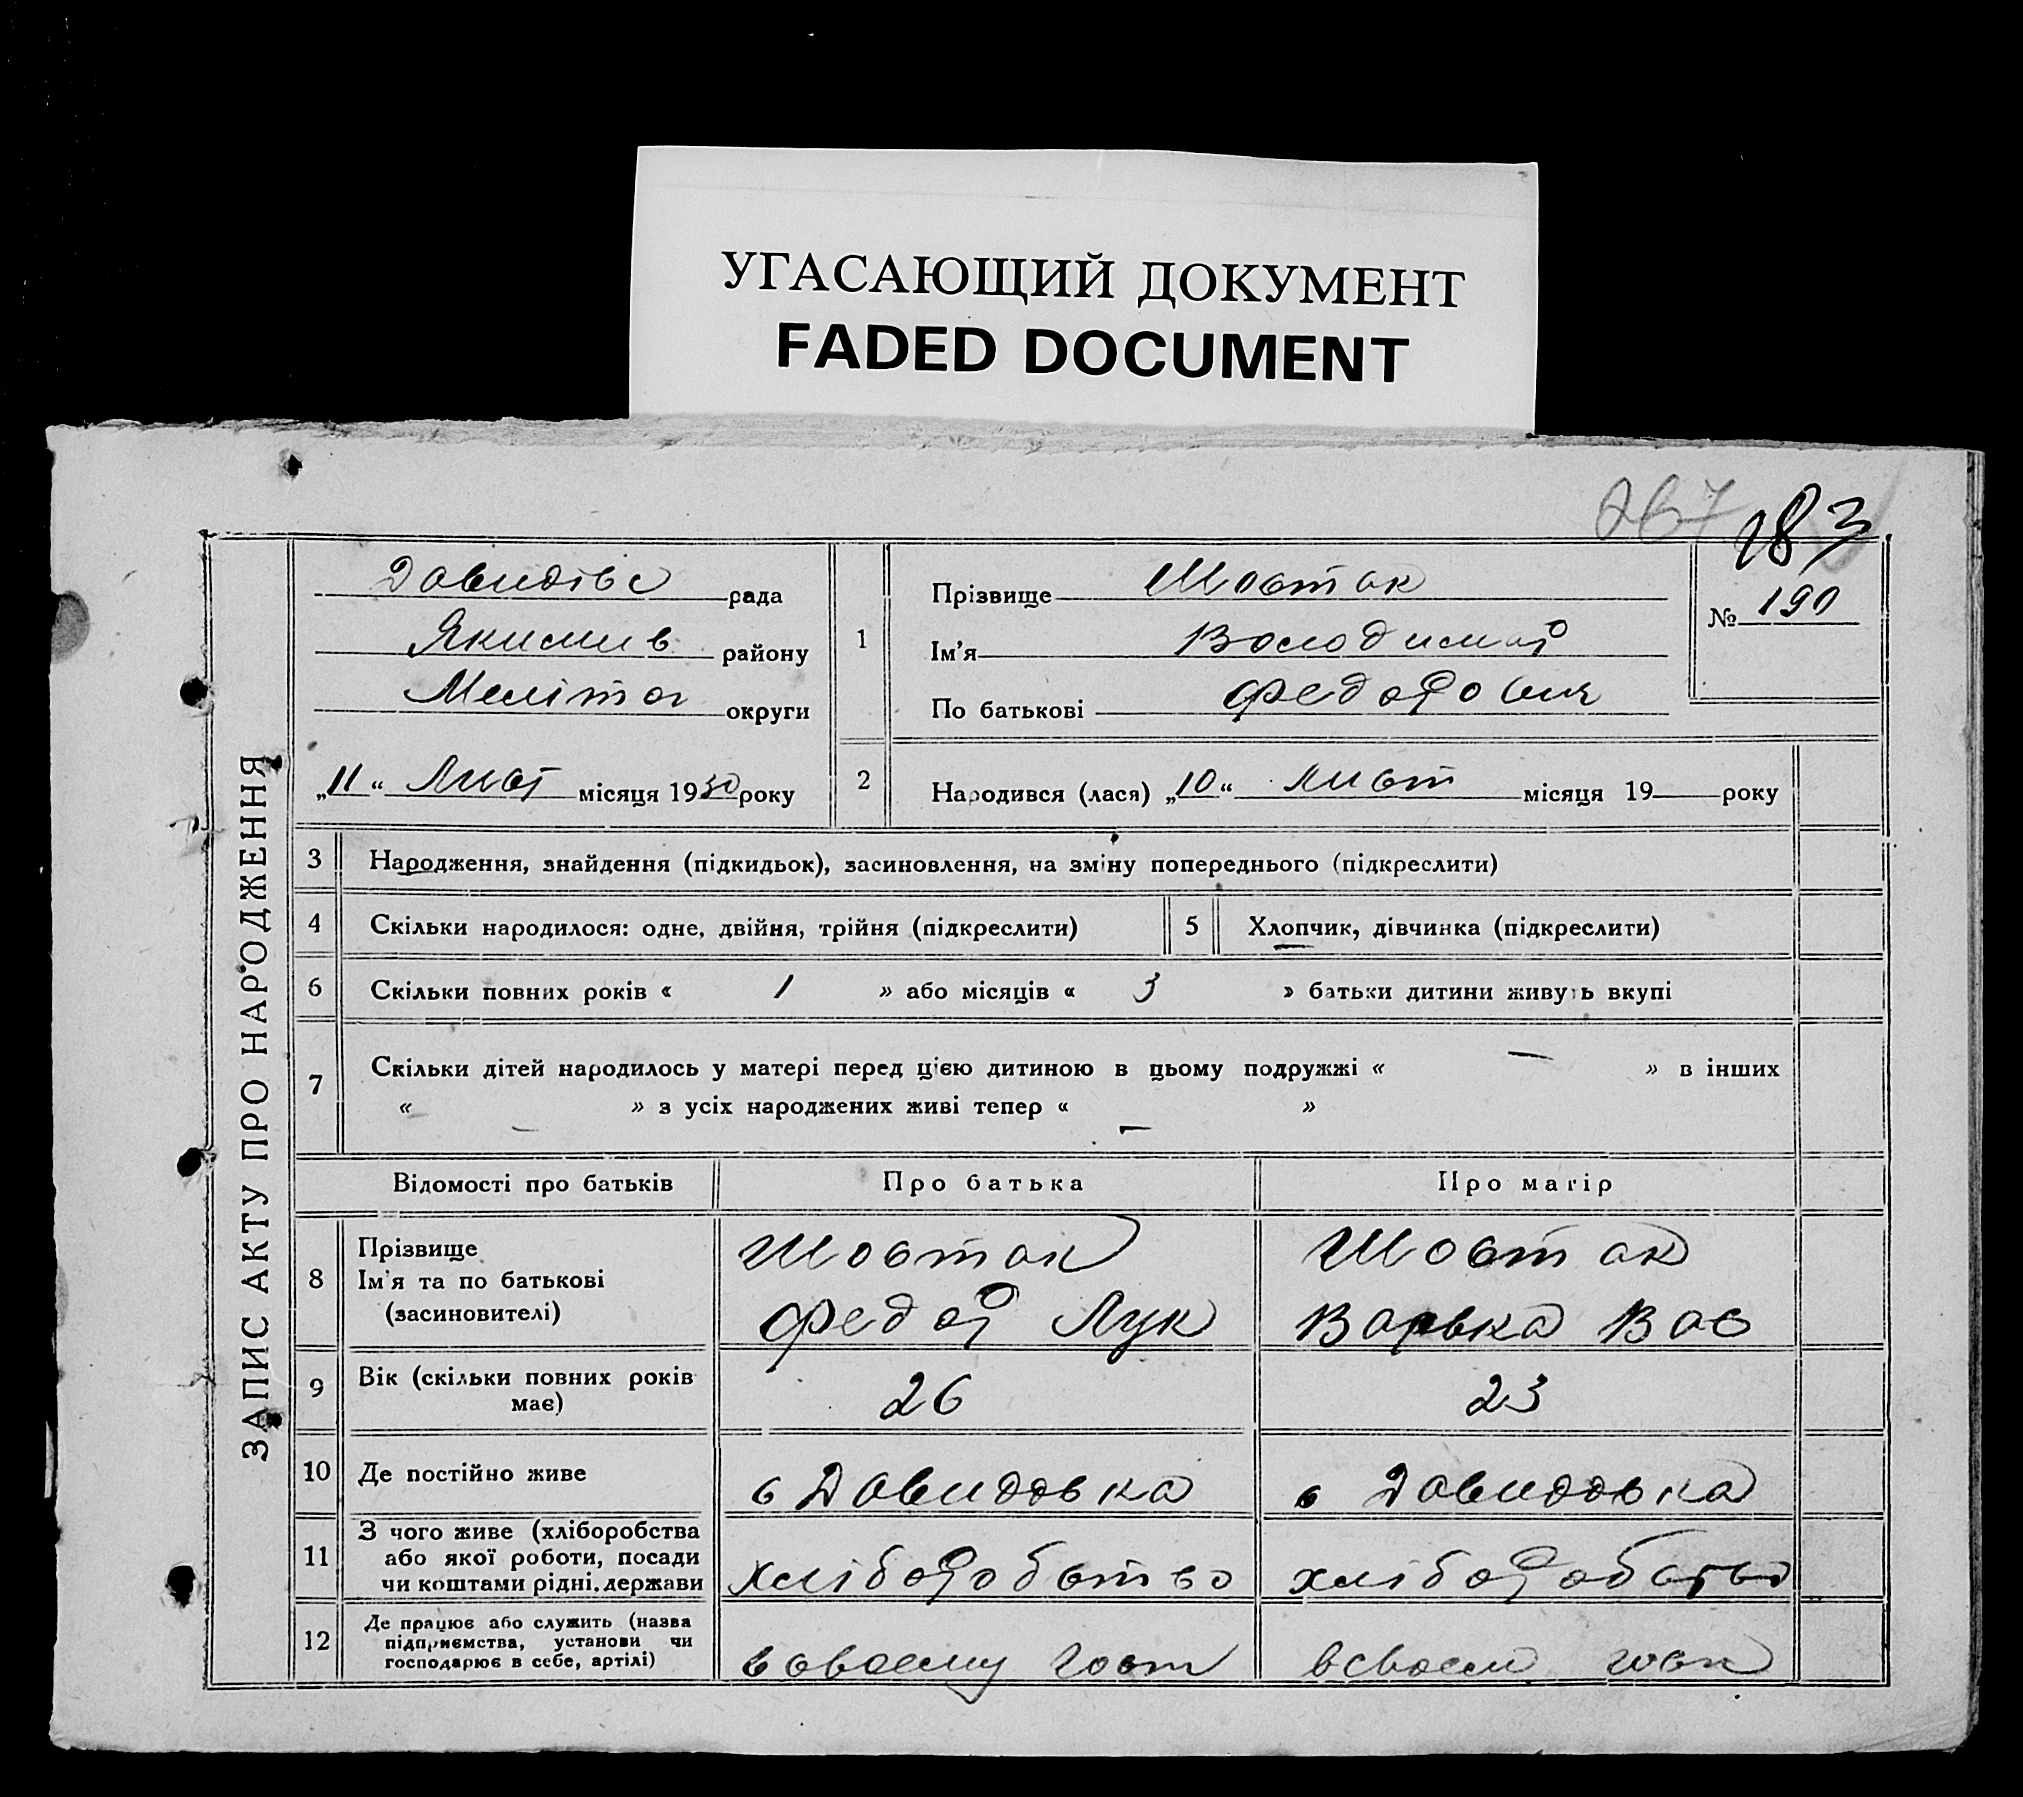 УГАСАЮЩИЙ ДОКУМЕНТ
FADED DOCUMENT
267 183
ЗАПИС АКТУ ПРО НАРОДЖЕННЯ
Давидівс рада
Якимив району
Меліто округи
„11“ Лист місяця 1930 року
1
Прізвище Шостак
Ім'я Володимир
По батькові Федорович
№ 190
2
Народився (лася) „10“ лист місяця 19 року
3 Народження, знайдення (підкидьок), засиновлення, на зміну попереднього (підкреслити)
4 Скільки народилося: одне, двійня, трійня (підкреслити) 5 Хлопчик, дівчинка (підкреслити)
6 Скільки повних років « 1 » або місяців « 3 » батьки дитини живуть вкупі
7 Скільки дітей народилось у матері перед цією дитиною в цьому подружжі « — » в інших
« — » з усіх народжених живі тепер « — »
Відомості про батьків Про батька Про матір
8 Прізвище Шостак Шостак
Ім'я та по батькові Федор Лук Варька Вас
(засиновителі)
9 Вік (скільки повних років 26 23
має)
10 Де постійно живе с Давидовка с Давидовка
11 З чого живе (хліборобства
або якої роботи, посади хліборобство хліборобство
чи коштами рідні, держави
12 Де працює або служить (назва
підприємства, установи чи
господарює в себе, артілі) в своєму госп в своем госп